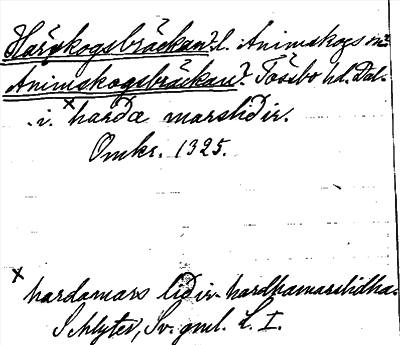 Hårskogsbräckan? l. Animskogs sn
Animskogsbräckan? Tössbo hd. Dal.
i. ˣharða marsliðir.
Omkr. 1325.
ˣ hardamars liðir- hardhamarslidha-
Schlyter, Sv. gml. L. I.